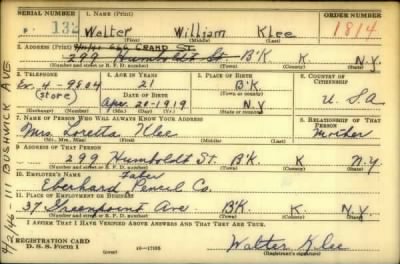 SERIAL NUMBER
1. NAME (Print)
ORDER NUMBER
P 132
Walter William Klee
1814
(First) (Middle) (Last)
2. ADDRESS (Print) 9/1/41 666 GRAND ST.
299 Humboldt St. B'K K N.Y.
(Number and street or R. F. D. number) (Town) (County) (State)
3. TELEPHONE
4. AGE IN YEARS
5. PLACE OF BIRTH
6. COUNTRY OF CITIZENSHIP
Ev. 4-9804
21
B'K
(Store)
DATE OF BIRTH
(Town or county)
Apr. 20-1919
N.Y
U.S.A
(Exchange) (Number)
(Mo.) (Day) (Yr.)
(State or country)
7. NAME OF PERSON WHO WILL ALWAYS KNOW YOUR ADDRESS
8. RELATIONSHIP OF THAT PERSON
Mrs. Loretta Klee
Mother
(Mr., Mrs., Miss) (First) (Middle) (Last)
9. ADDRESS OF THAT PERSON
299 Humboldt St. B'K K N.Y
(Number and street or R. F. D. number) (Town) (County) (State)
10. EMPLOYER'S NAME
Faber
Eberhard Pencil Co.
11. PLACE OF EMPLOYMENT OR BUSINESS
37 Greenpoint Ave B'K K N.Y.
(Number and street or R. F. D. number) (Town) (County) (State)
I AFFIRM THAT I HAVE VERIFIED ABOVE ANSWERS AND THAT THEY ARE TRUE.
REGISTRATION CARD
D. S. S. FORM 1
16-17105
Walter Klee
(Registrant's signature)
4/2/46-111 BUSHWICK AVE